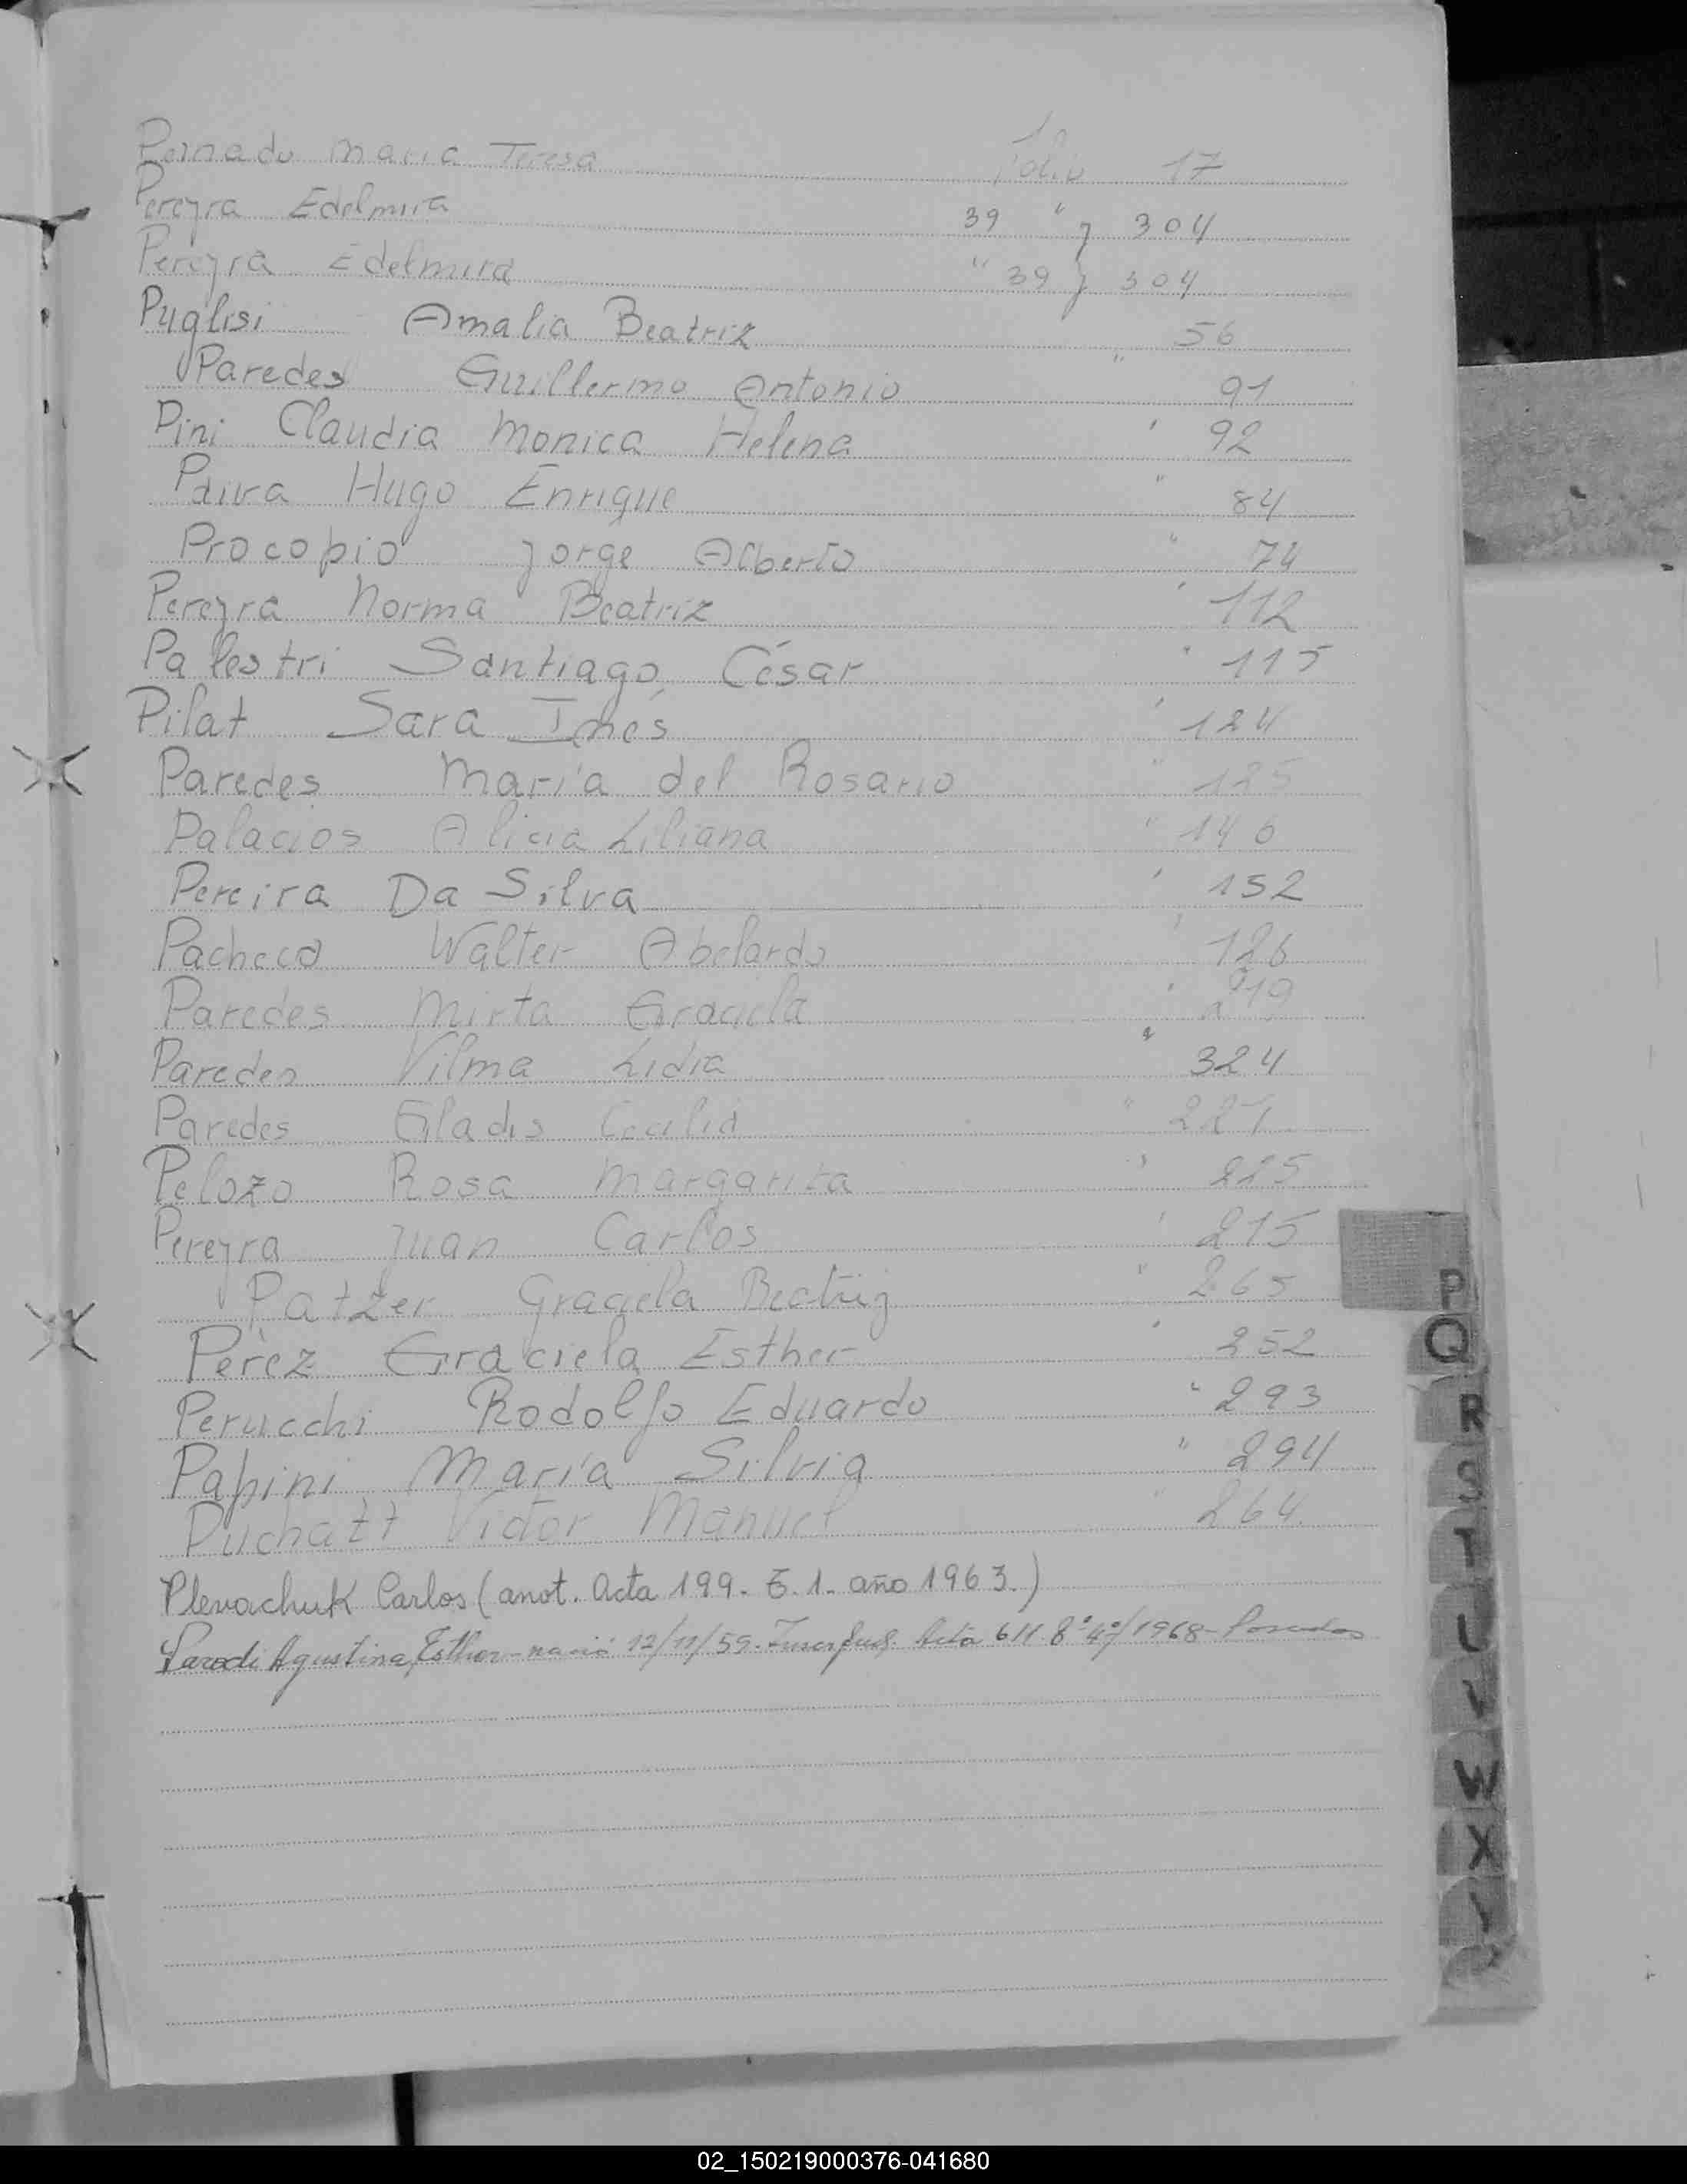 Maria Teresa Folio 17
Pereyra Edelmira 39 " y 304
Pereyra Edelmira " 39 y 304
Puglisi Amalia Beatriz 56
Paredes Guillermo Antonio " 91
Pini Claudia Monica Helena " 92
Paiva Hugo Enrique " 84
Procopio Jorge Alberto " 74
Pereyra Norma Beatriz " 112
Palestri Santiago César " 115
Pilat Sara Inés " 124
Paredes María del Rosario " 125
Palacios Alicia Liliana " 146
Pereira Da Silva " 152
Pacheco Walter Abelardo " 126
Paredes Mirta Graciela " 219
Paredes Vilma Lidia " 324
Paredes Gladis Cecilia " 221
Pelozo Rosa Margarita " 225
Pereyra Juan Carlos " 215
Patzer Graciela Beatriz " 265
Pérez Graciela Esther " 252
Perucchi Rodolfo Eduardo " 293
Papini María Silvia " 294
Puchatt Victor Manuel " 264
Plevachuk Carlos (anot. Acta 199. T. 1. año 1963.)
Parodi Agustina Esther - nació 12/11/59. Acta 611 1968 - Posadas
P
Q
R
S
T
U
V
W
X
Y
02_150219000376-041680